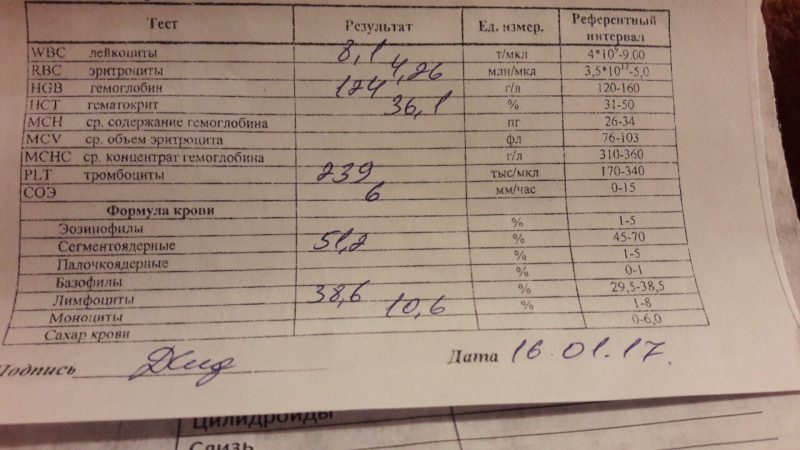 Тест Результат Ед. измер. Референтный интервал
WBC лейкоциты 8,1 т/мкл 4*10⁹-9,00
RBC эритроциты 4,26 млн/мкл 3,5*10¹²-5,0
HGB гемоглобин 124 г/л 120-160
HCT гематокрит 36,1 % 31-50
MCH ср. содержание гемоглобина пг 26-34
MCV ср. объем эритроцита фл 76-103
MCHC ср. концентрат гемоглобина г/л 310-360
PLT тромбоциты 239 тыс/мкл 170-340
СОЭ 6 мм/час 0-15
Формула крови
Эозинофилы % 1-5
Сегментоядерные 51,2 % 45-70
Палочкоядерные % 1-5
Базофилы % 0-1
Лимфоциты 38,6 % 29,5-38,5
Моноциты 10,6 % 1-8
Сахар крови 0-6,0
Подпись Дата 16.01.17.
Цилидроиды
Слизь